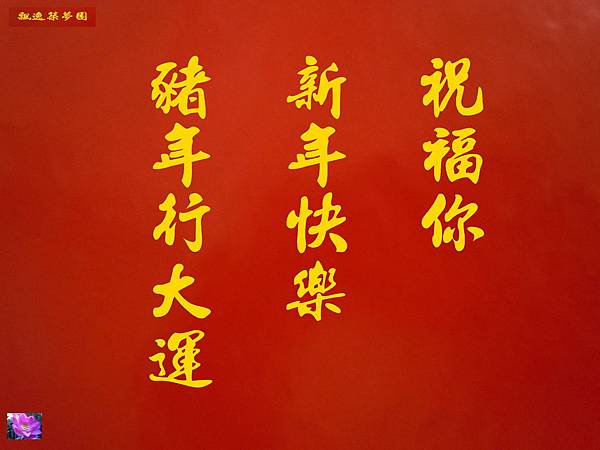 飄逸築夢園
祝福你
新年快樂
豬年行大運